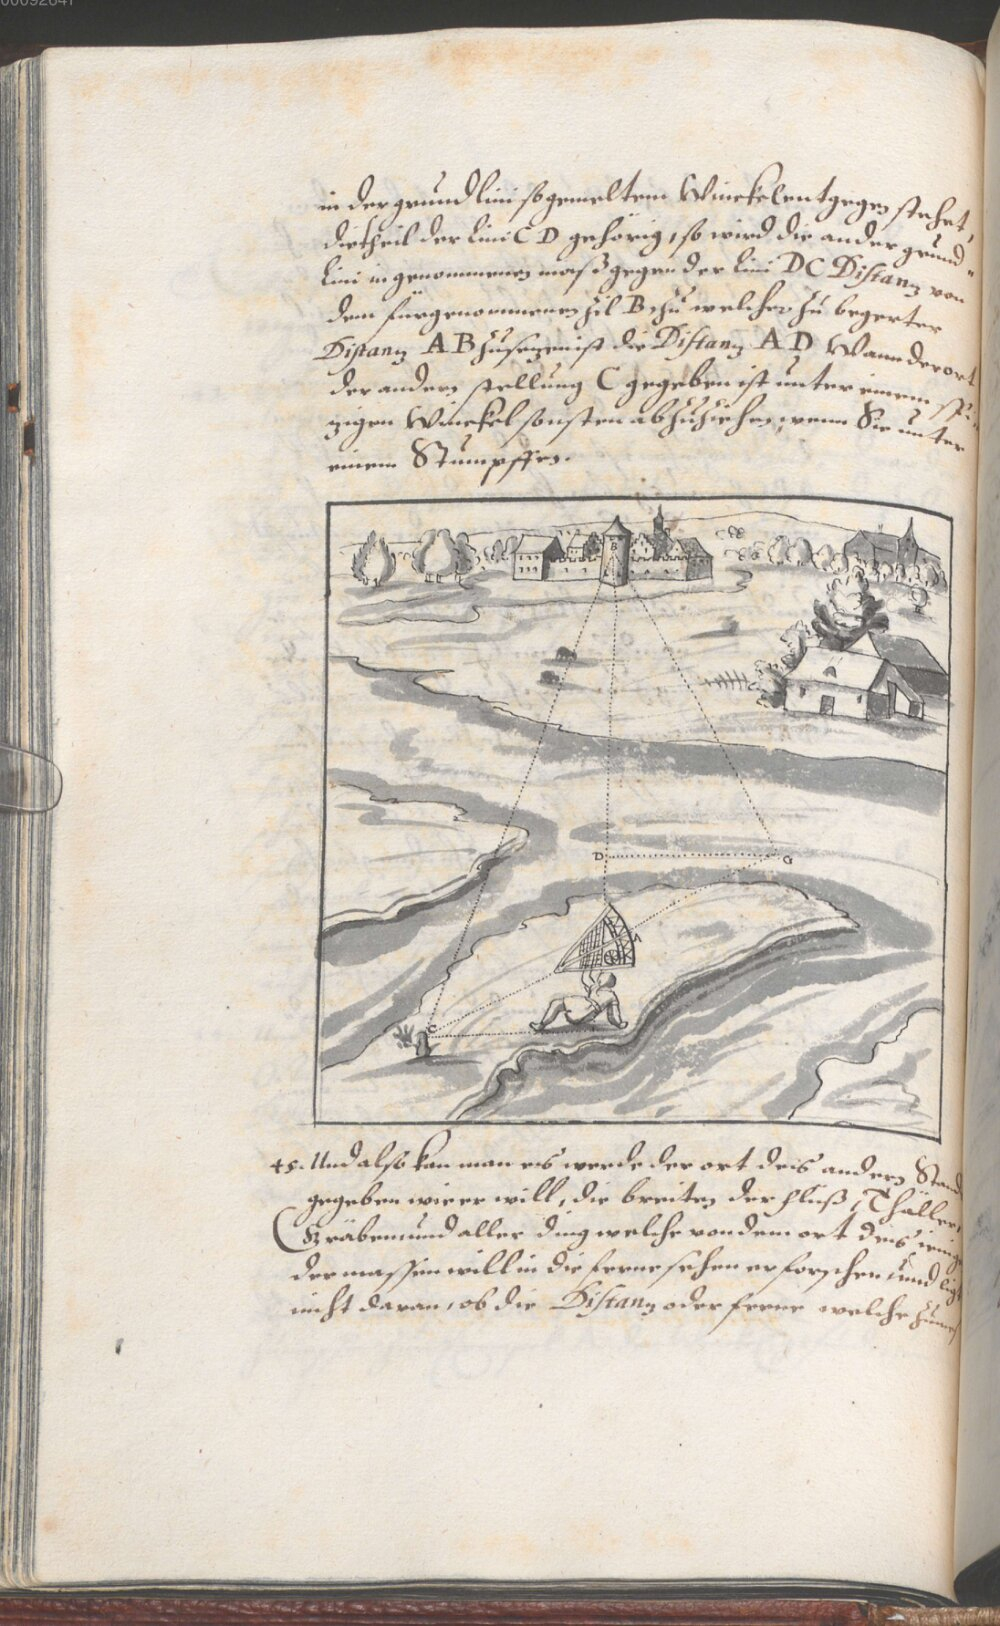 00092647
in der grundlini so gemeltem Winckel entgegen stehet,
die theil der Lini C D gehörig, so wird die ander grund„
Lini in genommenen maß gegen der Lini DC Distanz von
dem fürgenommenen zil B, zu welcher zu begerter
Distanz AB zusezen ist die Distanz AD Wann der ort
der andern stellung C gegeben ist unter einem spi„
zigen Winckel sonsten abzuziehen, wenn Sie unter
einem Stumpffen.
B
D G
C
45. Und also kan man es werde der ort des andern Stand
gegeben wie er will, die breiten der fluß, Thäller,
Gräben und aller ding welche von dem ort des
der massen will in die ferne sehen erforschen und ligt
nicht daran, ob die Distanz oder ferne welche